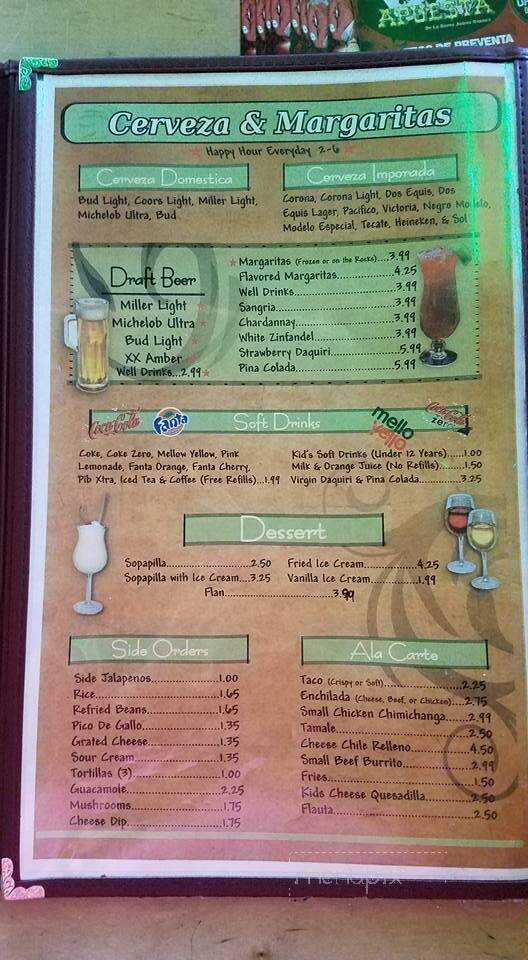 APUESTA
De La Sierra Juárez Oaxaca
DE PREVENTA
Cerveza & Margaritas
Happy Hour Everyday 2-6
Cerveza Domestica
Bud Light, Coors Light, Miller Light,
Michelob Ultra, Bud
Cerveza Imporada
Corona, Corona Light, Dos Equis, Dos
Equis Lager, Pacifico, Victoria, Negro Modelo,
Modelo Especial, Tecate, Heineken, & Sol
Draft Beer
Miller Light
Michelob Ultra
Bud Light
XX Amber
Well Drinks...2.99
Margaritas (Frozen or on the Rocks)....3.99
Flavored Margaritas....................4.25
Well Drinks....................3.99
Sangria....................3.99
Chardannay....................3.99
White Zinfandel....................3.99
Strawberry Daquiri....................5.99
Pina Colada....................5.99
Coca-Cola
Fanta
Soft Drinks
mello
yello
Coca-Cola
zero
Coke, Coke Zero, Mellow Yellow, Pink
Lemonade, Fanta Orange, Fanta Cherry,
Pib Xtra, Iced Tea & Coffee (Free Refills)...1.99
Kid's Soft Drinks (Under 12 Years)......1.00
Milk & Orange Juice (No Refills)........1.50
Virgin Daquiri & Pina Colada............3.25
Dessert
Sopapilla....................2.50
Sopapilla with Ice Cream....3.25
Fried Ice Cream....................4.25
Vanilla Ice Cream....................1.99
Flan....................3.99
Side Orders
Side Jalapenos....................1.00
Rice....................1.65
Refried Beans....................1.65
Pico De Gallo....................1.35
Grated Cheese....................1.35
Sour Cream....................1.35
Tortillas (3)....................1.00
Guacamole....................2.25
Mushrooms....................1.75
Cheese Dip....................1.75
Ala Carte
Taco (Crispy or Soft)....................2.25
Enchilada (Cheese, Beef, or Chicken)....2.75
Small Chicken Chimichanga.......2.99
Tamale....................2.50
Cheese Chile Relleno....................4.50
Small Beef Burrito....................2.99
Fries....................1.50
Kids Cheese Quesadilla............2.50
Flauta....................2.50
menupix